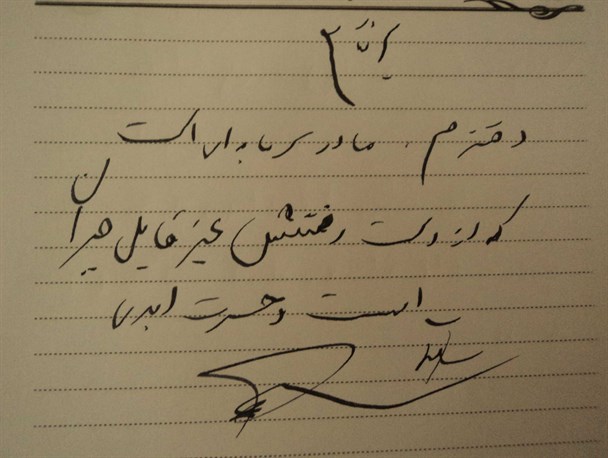 دخترم، مادر سرمایه ای است
که از دست رفتنش غیر قابل جبران
است و حسرت ابدی